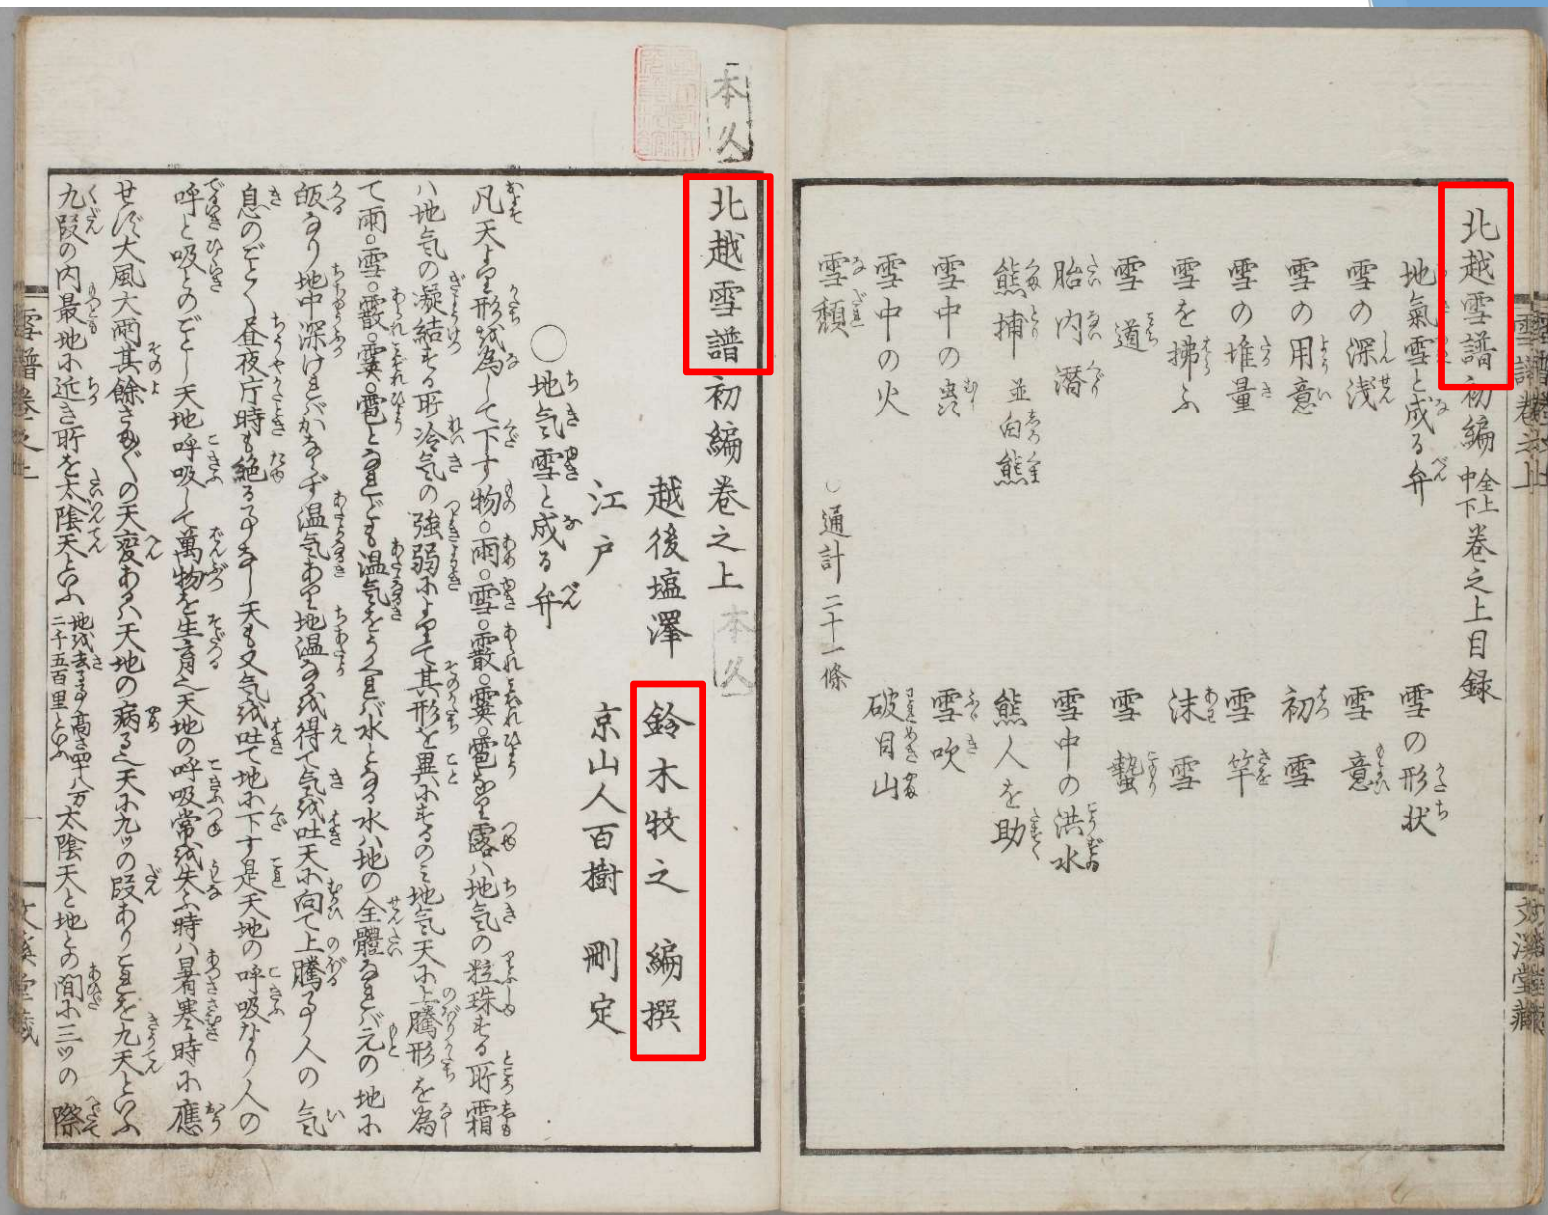 北越雪譜初編全上中下巻之上目録
地氣雪と成る弁
雪の形状
雪の深浅
雪意
雪の用意
初雪
雪の堆量
雪竿
雪を掃ふ
沫雪
雪道
雪蟄
胎内潜
雪中の洪水
熊捕 並白熊
熊人を助
雪中の虫
雪吹
雪中の火
破目山
雪頽
○通計二十一條
雪譜巻之上
文溪堂藏
本久
北越雪譜初編巻之上
本久
越後塩澤 鈴木牧之 編撰
江戸 京山人百樹 刪定
○地气雪と成る弁
凡天より形を為して下す物○雨○雪○霰○霙○雹なり露ハ地気の粒珠する所霜
ハ地気の凝結する所冷気の強弱によりて其形を異にするのミ地気天に上騰形を為
て雨○雪○霰○霙○雹となれども温気をうくれバ水となる水ハ地の全體なれバ元の地に
皈なり地中深けれバかならず温気あり地温なるを得て気を吐天に向て上騰事人の気
息のごとく昼夜片時も絶る事なし天も又気を吐て地に下す是天地の呼吸なり人の
呼と吸とのごとし天地呼吸して萬物を生育也天地の呼吸常を失ふ時ハ暑寒時に應
せず大風大雨其餘さま〴〵の天変あるハ天地の病る也天に九ツの段ありこれを九天といふ
九段の内最地に近き所を太陰天といふ 地を去る事高さ四十八万二千五百里といふ 太陰天と地との間に三ツの際
雪譜巻之上
文溪堂藏